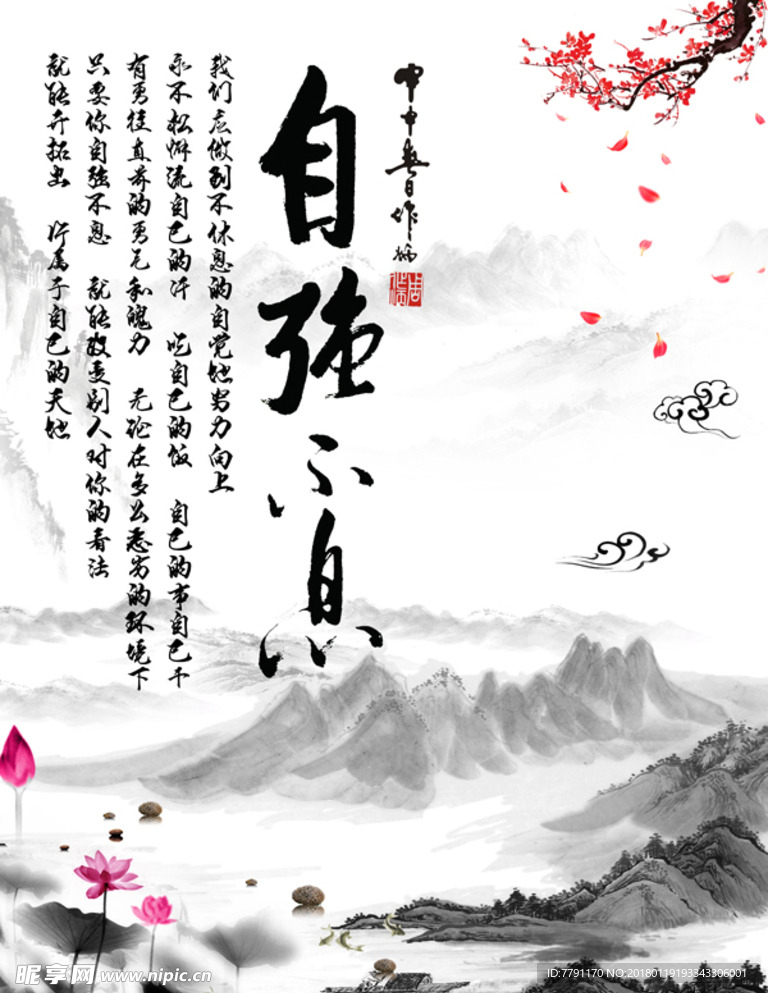 甲申春日作
自强不息
我们应做到不休息的自觉地努力向上
永不松懈流自己的汗 吃自己的饭 自己的事自己干
有勇往直前的勇气和魄力 无论在多么恶劣的环境下
只要你自强不息 就能改变别人对你的看法
就能开拓出 片属于自己的天地
昵享网 www.nipic.cn
ID:7791170 NO:20180119193343306001